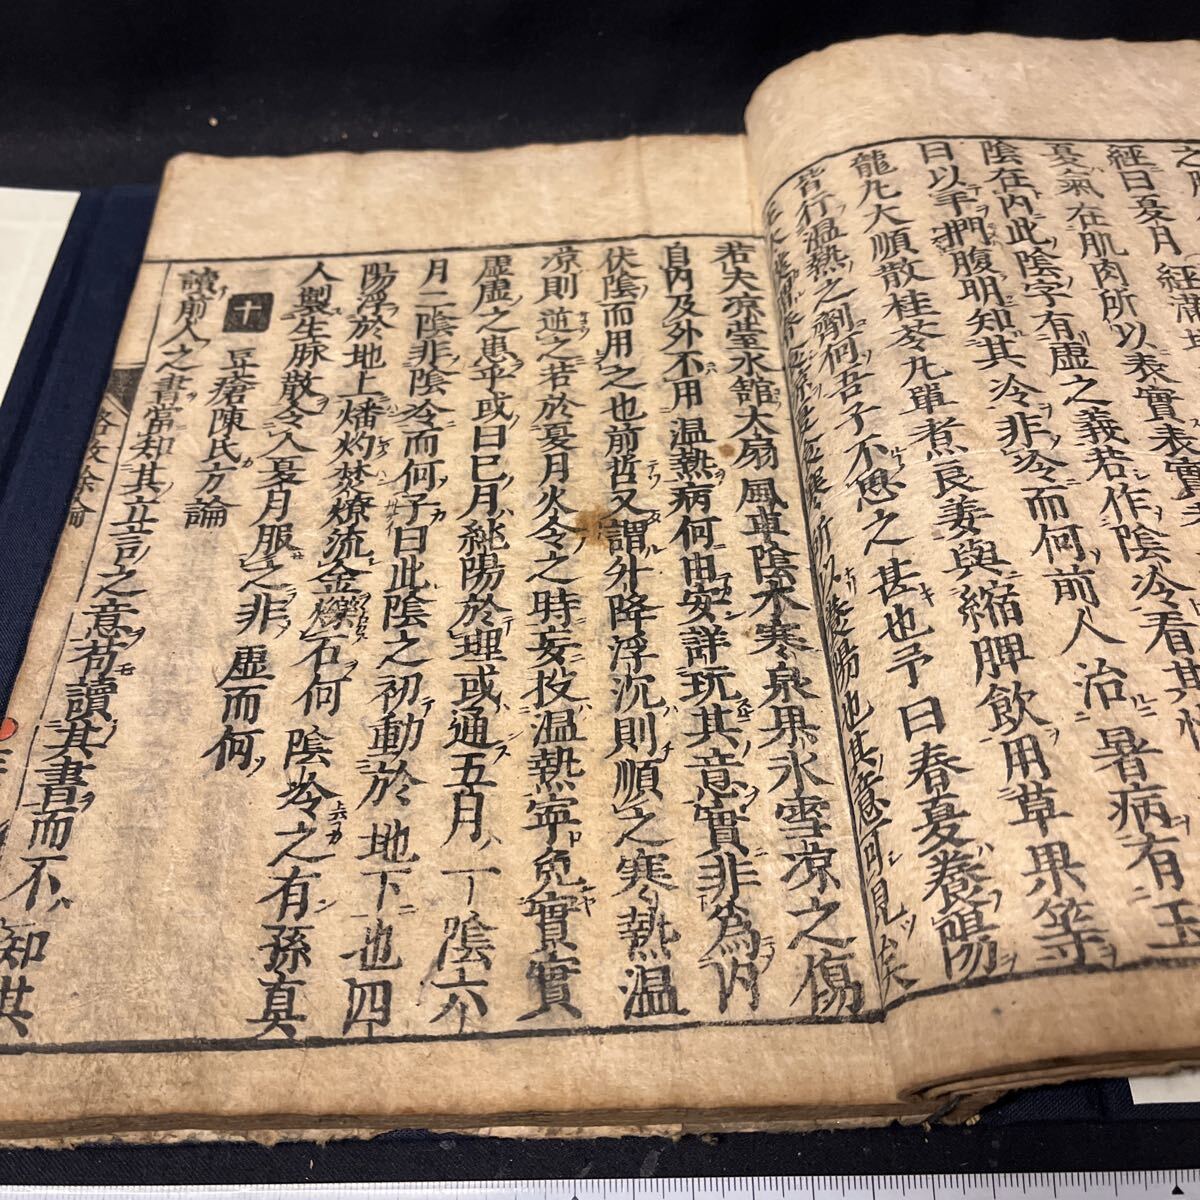 經曰夏月經滿地
夏氣在肌肉所以表實表實者
陰在內此陰字有虛之義若作陰冷看其
曰以手捫腹明知其冷非冷而何前人治暑病有玉
龍丸大順散桂苓丸單煮良姜與縮脾飲用草果等
皆行溫熱之劑何吾子不思之甚也予曰春夏養陽
若夫凉臺水館大扇風車陰水寒泉果氷雪凉之傷
自內及外不用溫熱病何由安詳玩其意實非為內
伏陰而用之也前哲又謂升降浮沉則順之寒熱溫
凉則逆之若於夏月火令之時妄投溫熱寧免實實
虛虛之患乎或曰巳月純陽於理或通五月一陰六
月二陰非陰冷而何予曰此陰之初動於地下也四
陽浮於地上燔灼焚燎流金爍石何陰冷之有孫真
人製生脉散令人夏月服之非虛而何
十 豆瘡陳氏方論
讀前人之書當知其立言之意苟讀其書而不知其
格致餘論